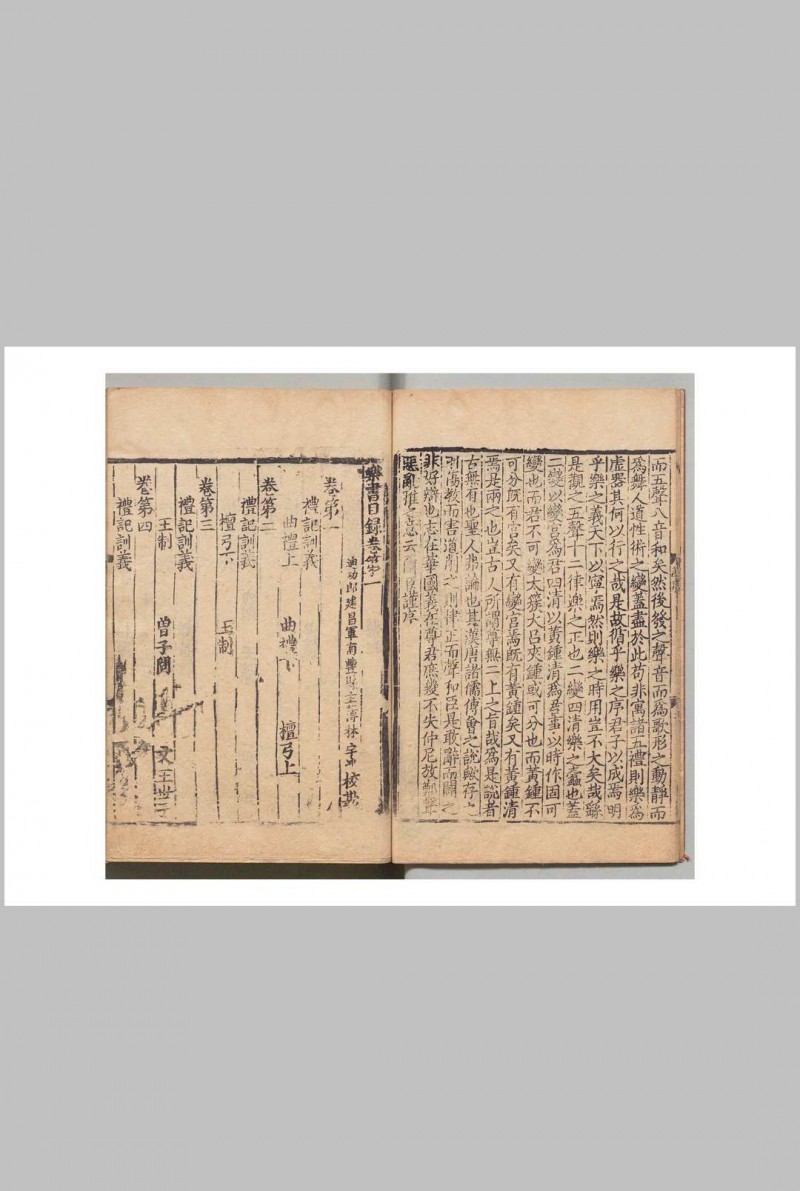 而五聲八音和矣然後發之聲音而爲歌形之動靜而
爲舞人道性術之變蓋盡於此苟非寓諸五禮則樂爲
虛器其何以行之哉是故循乎樂之序君子以成焉明
乎樂之義天下以寧焉然則樂之時用豈不大矣哉繇
是觀之五聲十二律樂之正也二變四清樂之蠧也蓋
二變以變宮爲君四清以黃鍾清爲君事以時作固可
變也而君不可變太簇大呂夾鍾或可分也而黃鍾不
可分既有宮矣又有變宮焉既有黃鍾矣又有黃鍾清
焉是兩之也豈古人所謂尊無二上之旨哉爲是說者
古無有也聖人弗論也其漢唐諸儒傳會之說歟存之
則傷教而害道削之則律正而聲和臣是敢辭而闢之
非好辯也志在華國義在尊君庶幾不失仲尼放鄭聲
惡亂雅之意云爾臣謹序
樂書目錄卷第一
迪功郎建昌軍南豐縣主簿林宇冲校勘
卷第一
禮記訓義
曲禮上 曲禮下 檀弓上
卷第二
禮記訓義
檀弓下 王制
卷第三
禮記訓義
王制 曾子問 文王世子
卷第四
禮記訓義